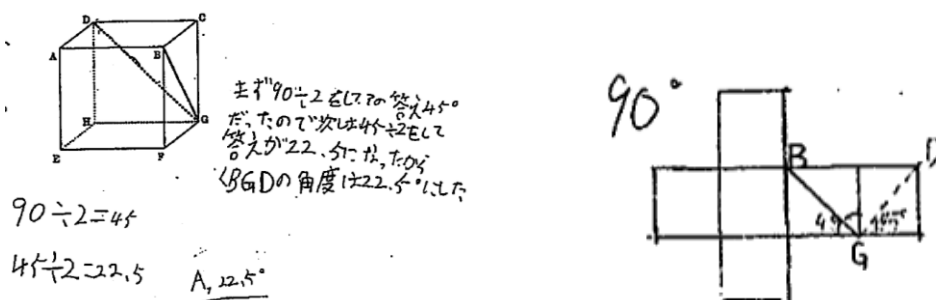 D
C
A
B
H
G
E
F
まず90÷2をしてその答え45°
だったので次は45÷2をして
答えが22.5になったから
<BGDの角度は22.5°にした
90÷2=45
45÷2=22.5
A, 22.5°
90°
B
D
45
45°
G